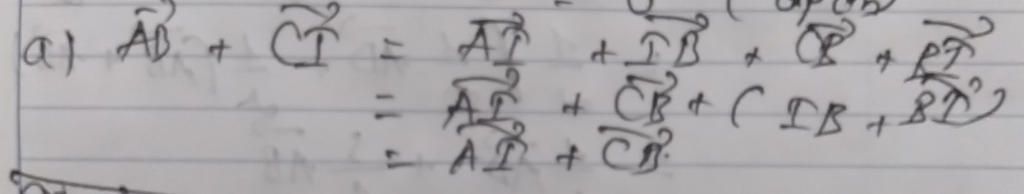 a) AB + CI = AI + IB + CB + BI
= AI + CB + ( IB + BI )
= AI + CB.